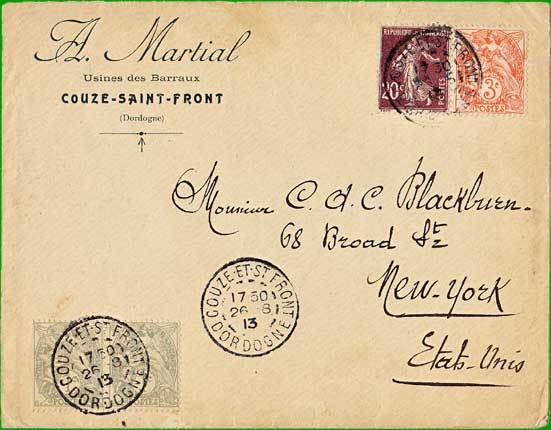 A. Martial
Usines des Barraux
COUZE-SAINT-FRONT
(Dordogne)
REPUBLIQUE FRANÇAISE
20c
POSTES
3c
POSTES
Monsieur C. d. C. Blackburn.
68 Broad St
New-York
Etats-Unis
COUZE-ET-ST FRONT
17 50
26 - 8
13
DORDOGNE
COUZE-ET-ST FRONT
17 50
26 - 8
13
DORDOGNE